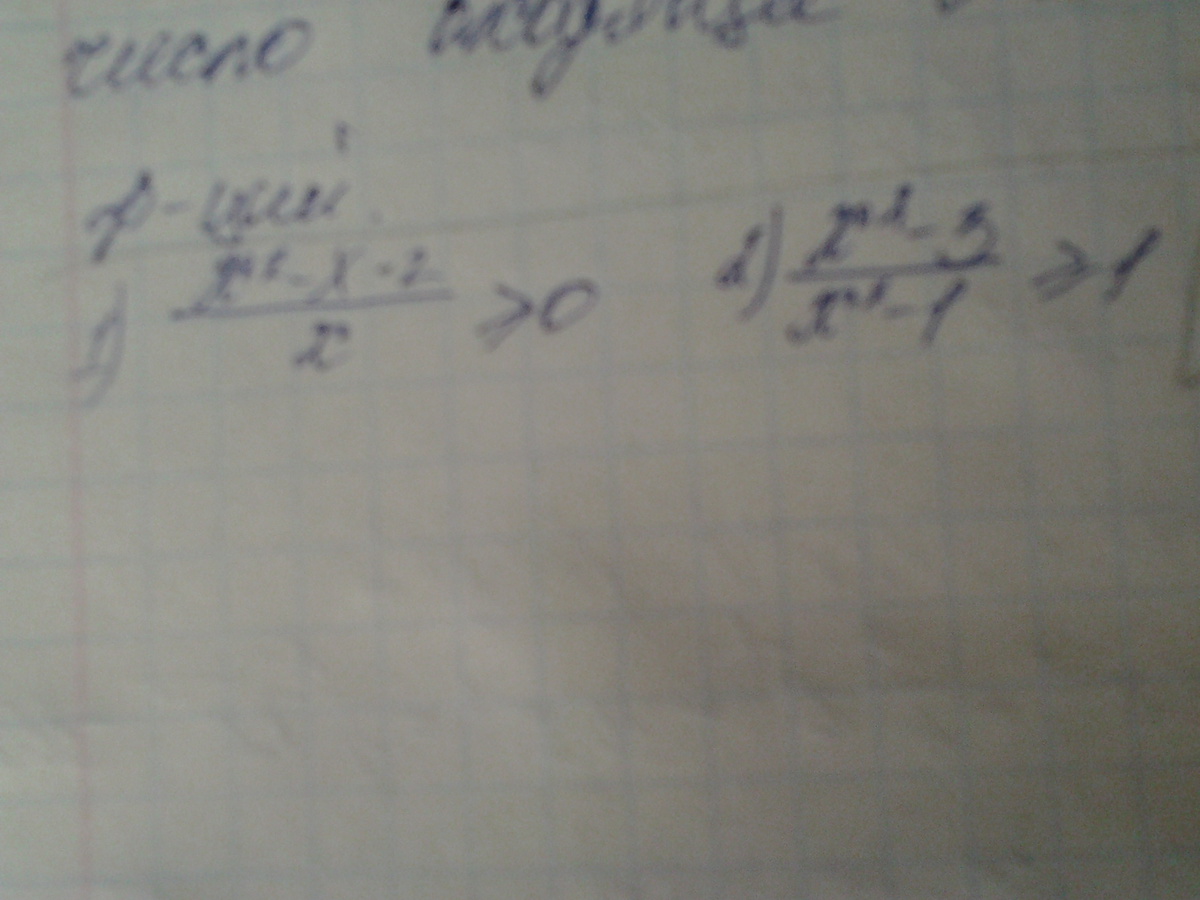 число
р-ции
1) (x² - x - 2)/x ≥ 0 2) (x² - 3)/(x² - 1) ≥ 1